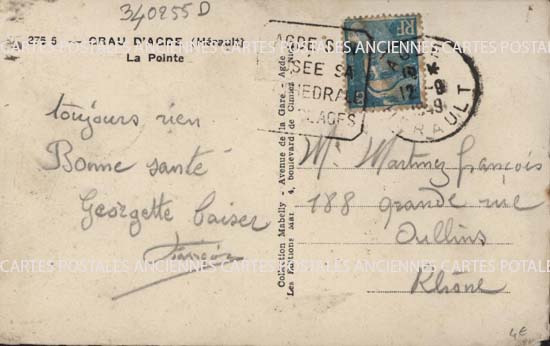 340255 D
275 5 — GRAU D'AGDE (Hérault)
La Pointe
toujours rien
Bonne santé
Georgette baiser
Collection Mabelly - Avenue de la Gare - Agde
Les Editions Mar, 4, boulevard de Cimiez - Nice
AGDE
SEE SA
HEDRALE
LAGES
RF
12 - 9
RAULT
Mr Martinez françois
188 grande rue
Oullins
Rhône
4€
CARTES POSTALES ANCIENNES CARTES POSTALES ANCIENNES CARTES POSTALES
CARTES POSTALES ANCIENNES CARTES POSTALES ANCIENNES CARTES POTALES